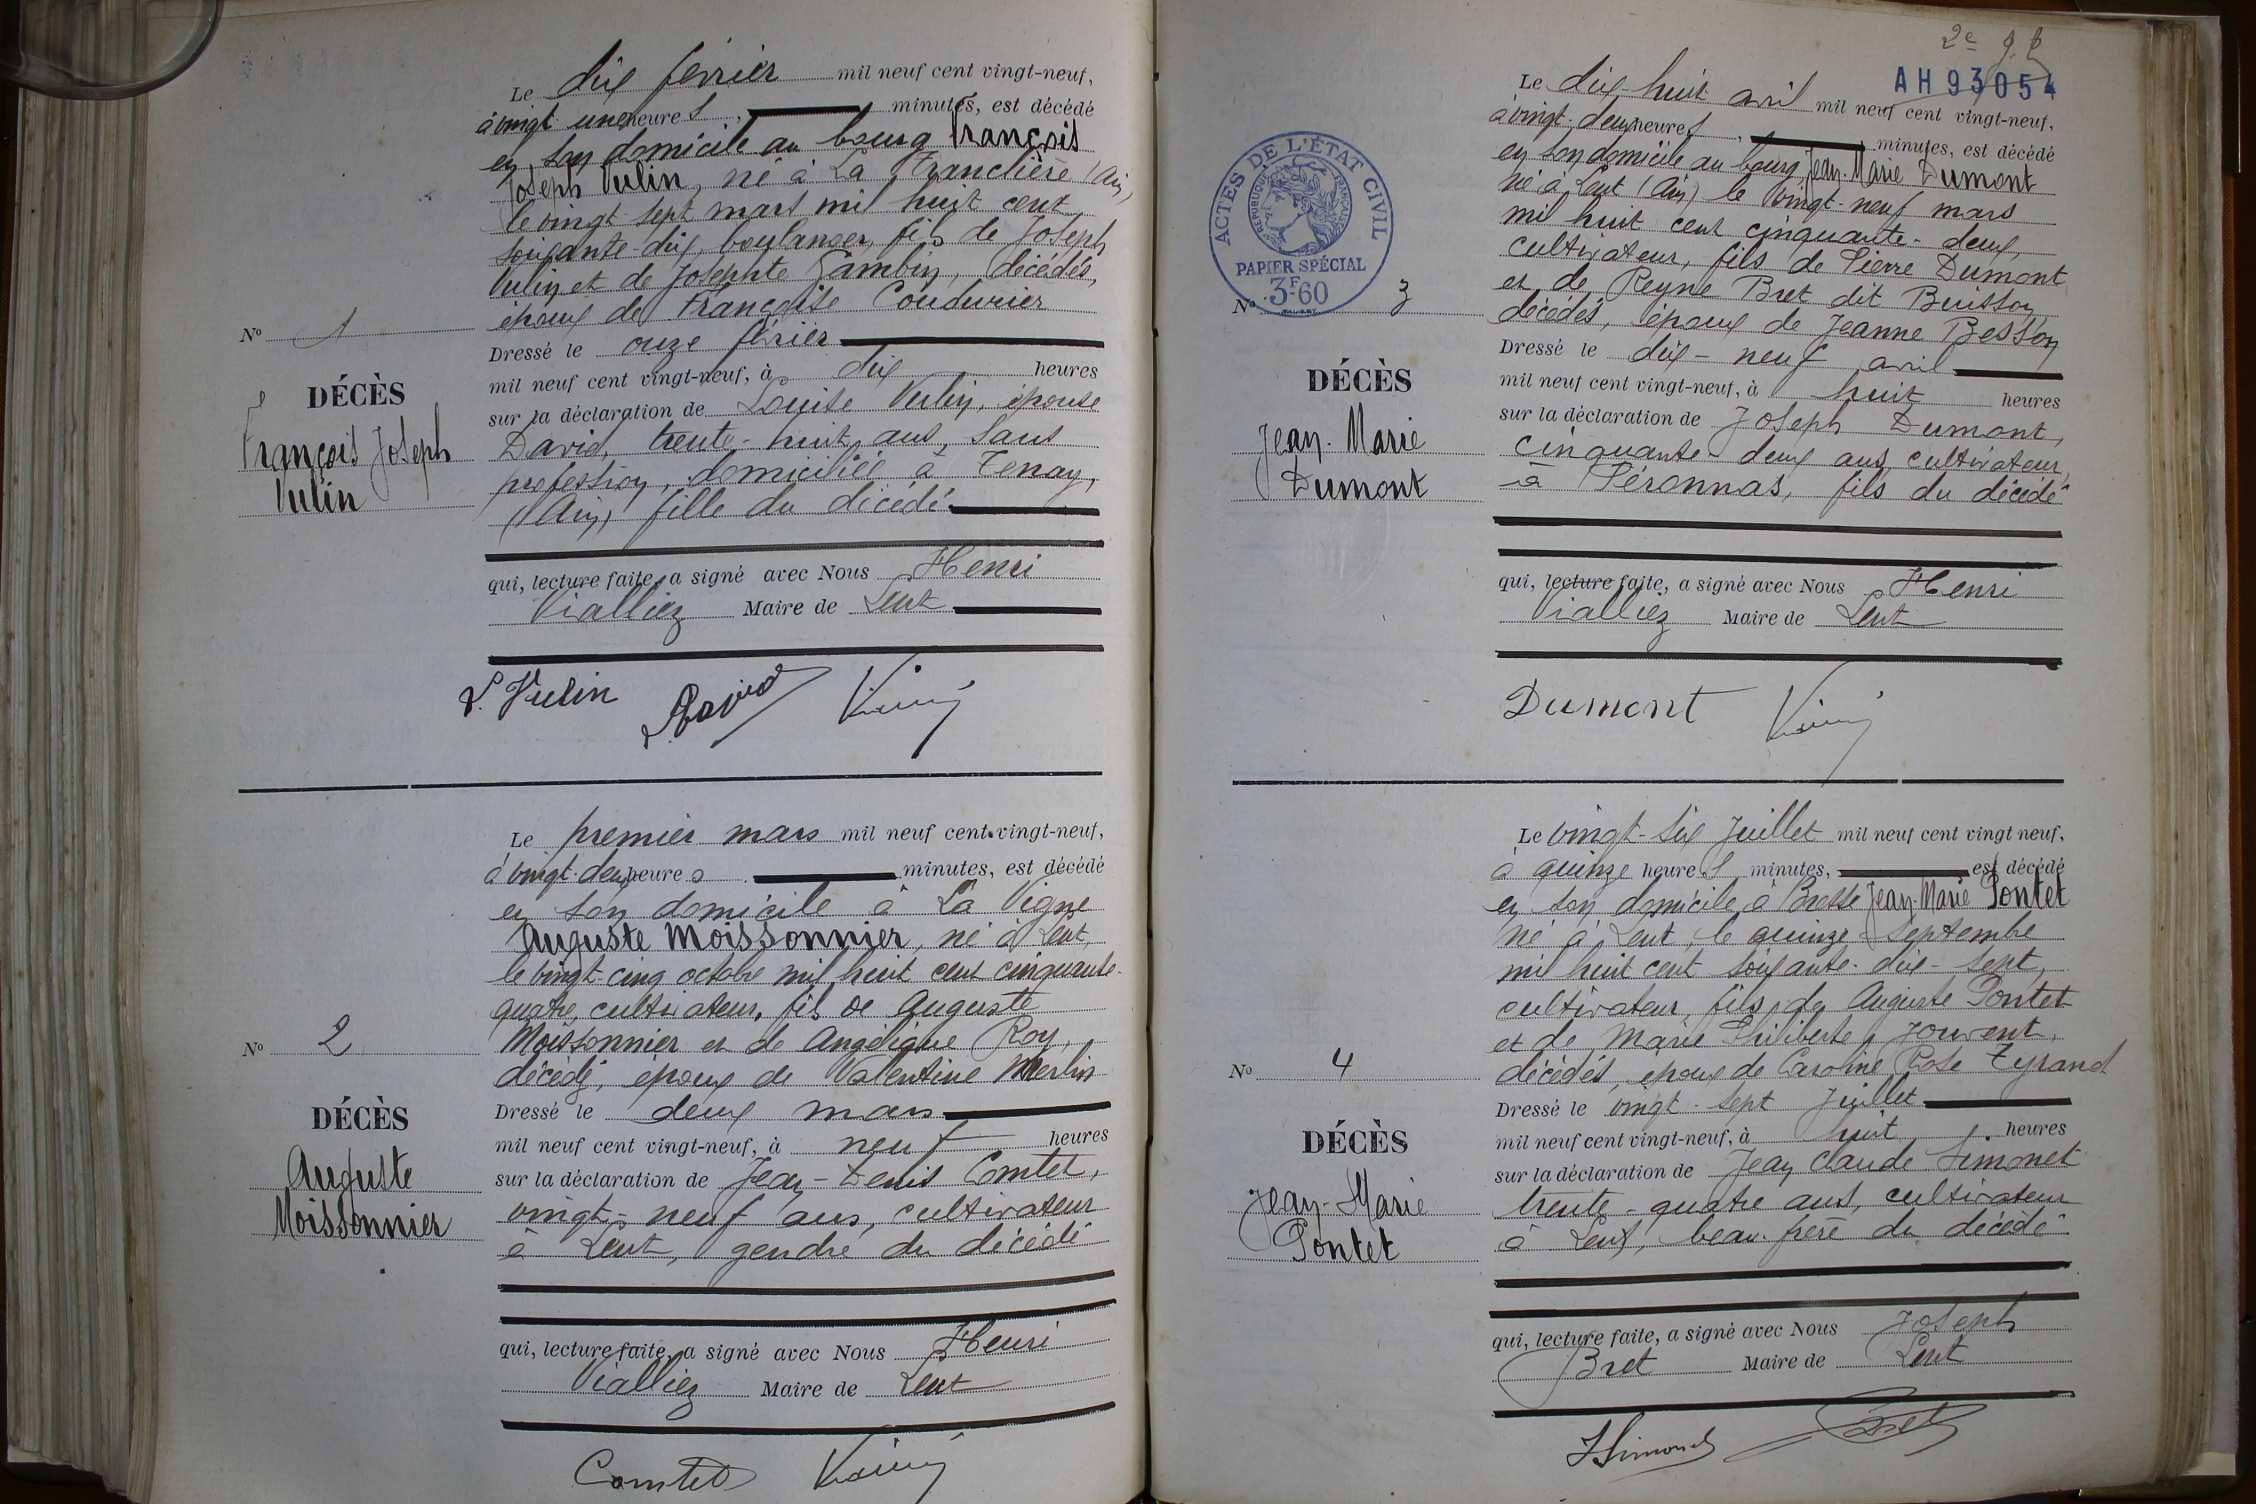 Le dix février mil neuf cent vingt-neuf,
à vingt une heures, minutes, est décédé
en son domicile au bourg François
Joseph Vulin, né à La Tranclière (Ain)
le vingt-sept mars mil huit cent
soixante-dix, boulanger, fils de Joseph
Vulin et de Josephte Gambin, décédés,
époux de Françoise Coudurier
Nº 1
Dressé le onze février
mil neuf cent vingt-neuf, à dix heures
DÉCÈS
sur la déclaration de Louise Vulin, épouse
François Joseph
Vulin
David, trente-huit ans, sans
profession, domiciliée à Tenay,
(Ain), fille du décédé
qui, lecture faite, a signé avec Nous Henri
Vialliez Maire de Lent
L. Vulin David
Le premier mars mil neuf cent vingt-neuf,
à vingt-deux heures minutes, est décédé
en son domicile à La Vigne
Auguste Moissonnier, né à Lent,
le vingt-cinq octobre mil huit cent cinquante-
quatre, cultivateur, fils de Auguste
Moissonnier et de Angélique Roy,
décédé, époux de Valentine Merlin
Nº 2
Dressé le deux mars
DÉCÈS
mil neuf cent vingt-neuf, à neuf heures
Auguste
Moissonnier
sur la déclaration de Jean-Denis Comtet,
vingt-neuf ans, cultivateur
à Lent, gendre du décédé
qui, lecture faite, a signé avec Nous Henri
Vialliez Maire de Lent
Comtet
2e
AH93054
ACTES DE L'ÉTAT CIVIL
RÉPUBLIQUE FRANÇAISE
PAPIER SPÉCIAL
3F.60
Le dix-huit avril mil neuf cent vingt-neuf,
à vingt-deux heures, minutes, est décédé
en son domicile au bourg Jean-Marie Dumont
né à Lent (Ain) le vingt-neuf mars
mil huit cent cinquante-deux,
cultivateur, fils de Pierre Dumont
et de Reyne Bret dit Buisson
décédés, époux de Jeanne Besson
Nº 3
Dressé le dix-neuf avril
DÉCÈS
mil neuf cent vingt-neuf, à huit heures
Jean-Marie
Dumont
sur la déclaration de Joseph Dumont,
cinquante-deux ans, cultivateur,
à Péronnas, fils du décédé
qui, lecture faite, a signé avec Nous Henri
Vialliez Maire de Lent
Dumont
Le vingt-six Juillet mil neuf cent vingt neuf,
à quinze heures minutes, est décédé
en son domicile à Brosse Jean-Marie Pontet
né à Lent, le quinze Septembre
mil huit cent soixante-dix-sept,
cultivateur, fils de Auguste Pontet
et de Marie Philiberte Jouvent,
décédés, époux de Caroline Rose Tyrand
Nº 4
Dressé le vingt-sept Juillet
DÉCÈS
mil neuf cent vingt-neuf, à huit heures
Jean-Marie
Pontet
sur la déclaration de Jean Claude Simonet
trente-quatre ans, cultivateur
à Lent, beau-frère du décédé
qui, lecture faite, a signé avec Nous Joseph
Bret Maire de Lent
JSimonet Bret